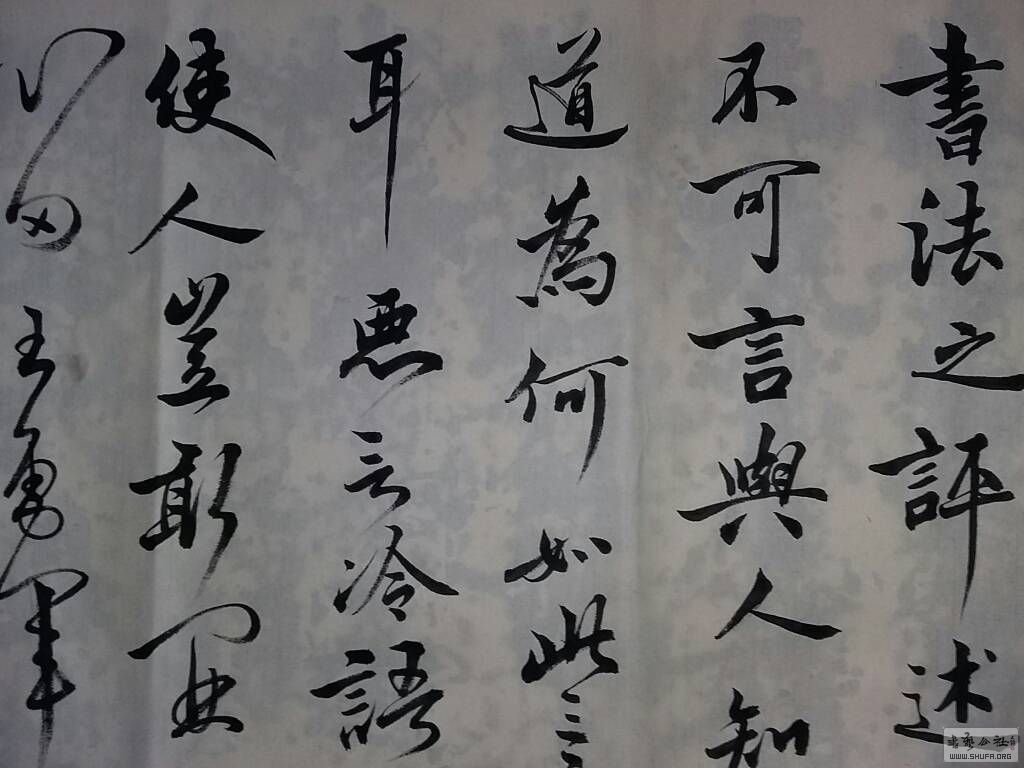 書法之評述
不可言與人知
道為何如此
耳悪言冷語
使人豈敢
王勇軍
書藝公社
WWW.SHUFA.ORG